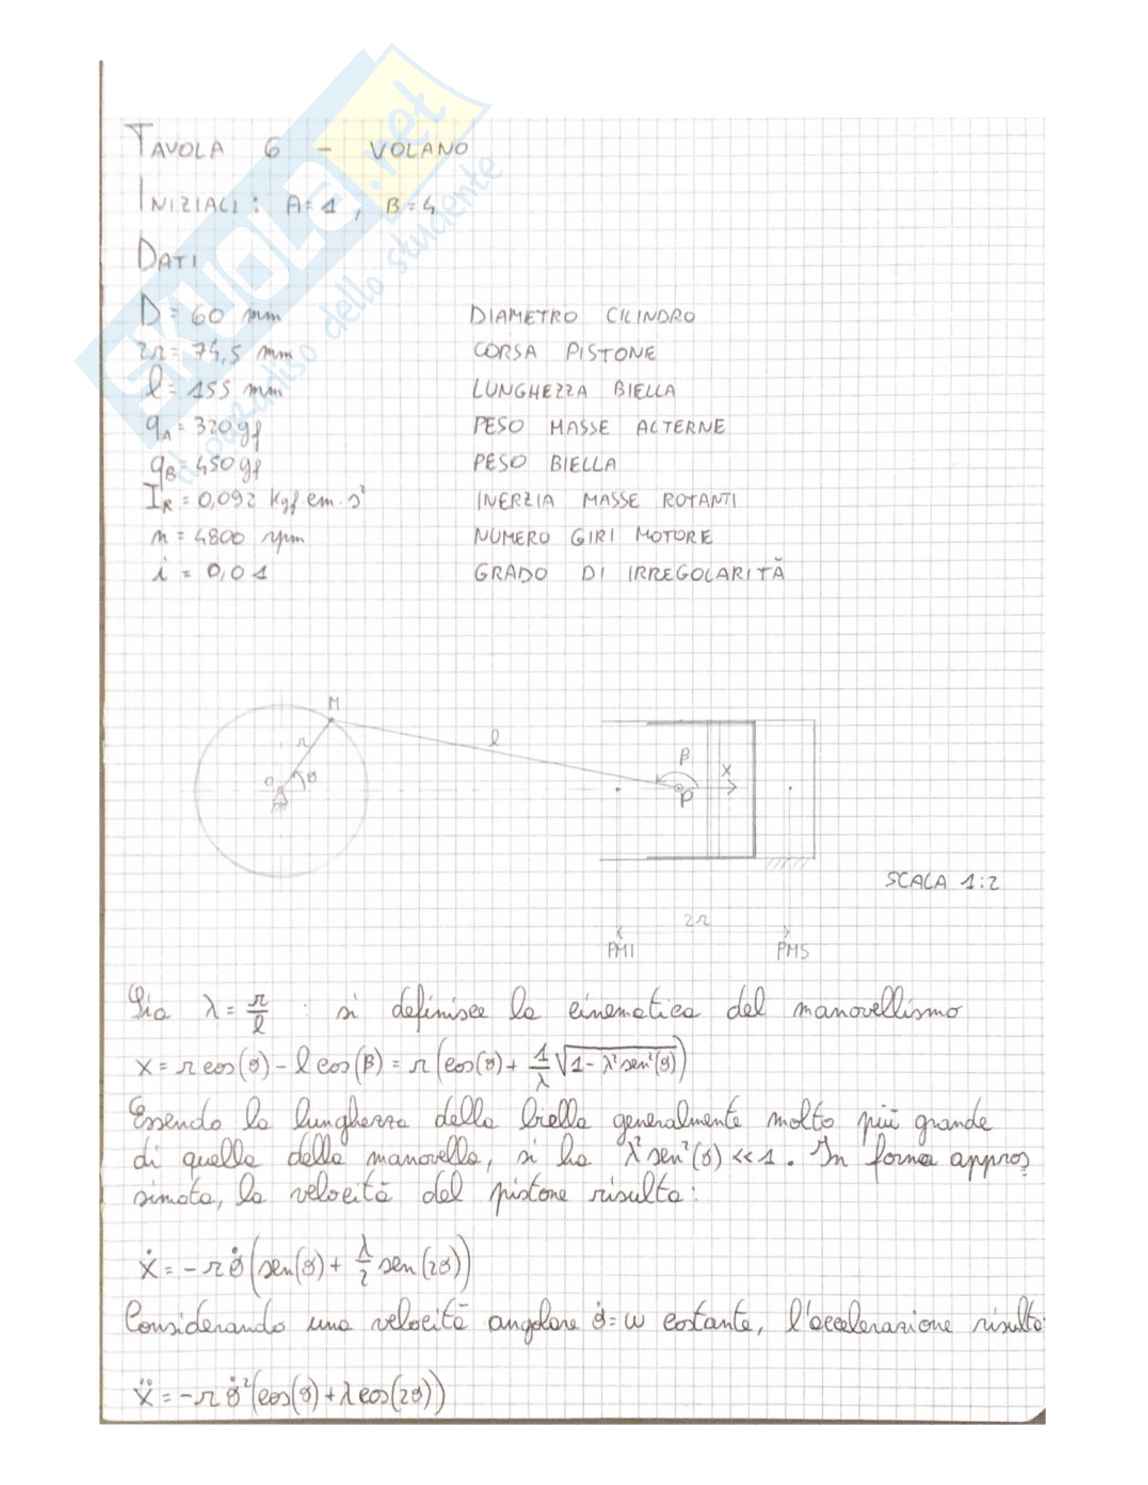 TAVOLA 6 - VOLANO
INIZIALI: A=1, B=4
DATI
D = 60 mm DIAMETRO CILINDRO
2r = 74,5 mm CORSA PISTONE
l = 155 mm LUNGHEZZA BIELLA
qA = 320 gf PESO MASSE ALTERNE
qB = 450 gf PESO BIELLA
IR = 0,092 Kgf cm·s² INERZIA MASSE ROTANTI
n = 4800 rpm NUMERO GIRI MOTORE
i = 0,01 GRADO DI IRREGOLARITÀ
SKUOLA.net
il paradiso dello studente
M
r
l
O
θ
β
x
P
SCALA 1:2
2r
PMI PMS
Sia λ = r/l : si definisce la cinematica del manovellismo
x = r cos(θ) - l cos(β) = r (cos(θ) + 1/λ √(1 - λ² sen²(θ)))
Essendo la lunghezza della biella generalmente molto più grande
di quella della manovella, si ha λ² sen²(θ) << 1. In forma appros
simata, la velocità del pistone risulta:
ẋ = -r θ̇ (sen(θ) + λ/2 sen(2θ))
Considerando una velocità angolare θ̇ = ω costante, l'accelerazione risulta
ẍ = -r θ̇² (cos(θ) + λ cos(2θ))